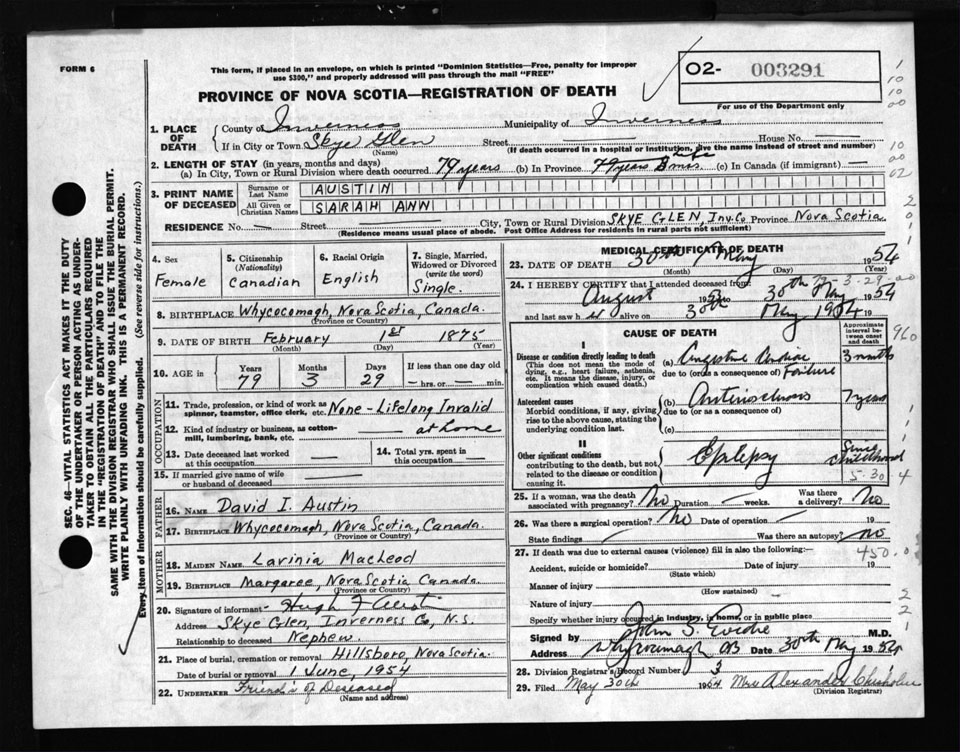 FORM 6
This form, if placed in an envelope, on which is printed "Dominion Statistics—Free, penalty for improper
use $300," and properly addressed will pass through the mail "FREE"
O2- 003291
For use of the Department only
PROVINCE OF NOVA SCOTIA—REGISTRATION OF DEATH
1. PLACE OF DEATH
County of Inverness Municipality of Inverness
If in City or Town Skye Glen Street House No.
(Name) (If death occurred in a hospital or institution, give the name instead of street and number)
2. LENGTH OF STAY (in years, months and days)
(a) In City, Town or Rural Division where death occurred 79 years (b) In Province 79 years (c) In Canada (if immigrant) —
3. PRINT NAME OF DECEASED
Surname or Last Name AUSTIN
All Given or Christian Names SARAH ANN
RESIDENCE No. — Street City, Town or Rural Division SKYE GLEN, Inv. Co Province Nova Scotia
(Residence means usual place of abode. Post Office Address for residents in rural parts not sufficient)
4. Sex
Female
5. Citizenship (Nationality)
Canadian
6. Racial Origin
English
7. Single, Married, Widowed or Divorced (write the word)
Single.
8. BIRTHPLACE Whycocomagh, Nova Scotia, Canada.
(Province or Country)
9. DATE OF BIRTH February 1st 1875
(Month) (Day) (Year)
10. AGE in Years Months Days If less than one day old
79 3 29 — hrs. or — min.
OCCUPATION
11. Trade, profession, or kind of work as spinner, teamster, office clerk, etc. None - Lifelong Invalid
12. Kind of industry or business, as cotton-mill, lumbering, bank, etc. at home
13. Date deceased last worked at this occupation —
14. Total yrs. spent in this occupation —
15. If married give name of wife or husband of deceased —
FATHER
16. NAME David I. Austin
17. BIRTHPLACE Whycocomagh, Nova Scotia, Canada.
(Province or Country)
MOTHER
18. MAIDEN NAME Lavinia MacLeod
19. BIRTHPLACE Margaree, Nova Scotia Canada.
(Province or Country)
20. Signature of informant Hugh F Austin
Address Skye Glen, Inverness Co, N.S.
Relationship to deceased Nephew.
21. Place of burial, cremation or removal Hillsboro, Nova Scotia.
Date of burial or removal 1 June, 1954
22. UNDERTAKER Friends of Deceased
(Name and address)
MEDICAL CERTIFICATE OF DEATH
23. DATE OF DEATH 30th May 1954
(Month) (Day) (Year)
24. I HEREBY CERTIFY that I attended deceased from:
August 19 to 30th May 1954
and last saw h alive on 30th May 1954
CAUSE OF DEATH
Approximate interval between onset and death
I
Disease or condition directly leading to death
(This does not mean the mode of dying, e.g., heart failure, asthenia, etc. It means the disease, injury, or complication which caused death.)
(a) Congestive Cardiac Failure 3 months
due to (or as a consequence of)
Antecedent causes
Morbid conditions, if any, giving rise to the above cause, stating the underlying condition last.
(b) 7 years
due to (or as a consequence of)
(c)
II
Other significant conditions
contributing to the death, but not related to the disease or condition causing it.
Epilepsy Since childhood
5-30 4
25. If a woman, was the death associated with pregnancy? No Duration — weeks. Was there a delivery? No
26. Was there a surgical operation? No Date of operation — 19
State findings — Was there an autopsy? No
27. If death was due to external causes (violence) fill in also the following:—
Accident, suicide or homicide? Date of injury 19
(State which)
Manner of injury
(How sustained)
Nature of injury
Specify whether injury occurred in industry, in home, or in public place
Signed by M.D.
Address Date 30th May 1954
28. Division Registrar's Record Number 3
29. Filed May 30th 1954 Mrs Alexander Chisholm
(Division Registrar)
SEC. 46—VITAL STATISTICS ACT MAKES IT THE DUTY
OF THE UNDERTAKER OR PERSON ACTING AS UNDER-
TAKER TO OBTAIN ALL THE PARTICULARS REQUIRED
IN THE "REGISTRATION OF DEATH" AND TO FILE THE
SAME WITH THE DIVISION REGISTRAR WHO SHALL ISSUE THE BURIAL PERMIT.
WRITE PLAINLY WITH UNFADING INK. THIS IS A PERMANENT RECORD.
Every item of information should be carefully supplied. (See reverse side for instructions.)